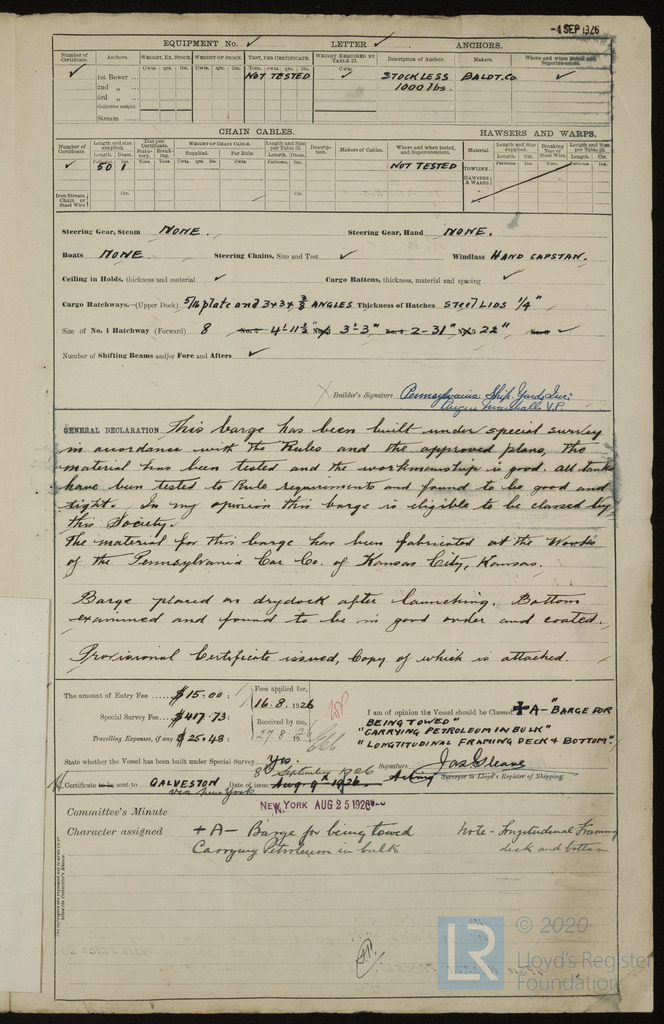 -4 SEP 1926
EQUIPMENT No. ✓ LETTER ✓ ANCHORS.
Number of Certificate. Anchors. WEIGHT, EX. STOCK. WEIGHT OF STOCK. TEST, PER CERTIFICATE. WEIGHT REQUIRED BY TABLE 53. Description of Anchor. Makers. Where and when tested and Superintendent.
Cwts. qrs. lbs. Cwts. qrs. lbs. Tons. cwts. qrs. lbs. Cwts.
✓ 1st Bower NOT TESTED ✓ STOCKLESS BALDT. Co. ✓
2nd „ 1000 lbs.
3rd „
Collective weight.
Stream
CHAIN CABLES. HAWSERS AND WARPS.
Number of Certificate. Length and size supplied. Test per Certificate. WEIGHT OF CHAIN CABLE. Length and Size per Table 53. Description. Makers of Cables. Where and when tested, and Superintendent. Material. Length and Size supplied. Breaking Test of Steel Wire. Length and Size per Table 53.
Length. Diam. Statutory. Breaking. Supplied. Per Rule. Length. Diam. Length. Cir. Length. Cir.
✓ 50 1 NOT TESTED TOWLINE
HAWSERS & WARPS
Iron Stream Chain or Steel Wire
Steering Gear, Steam NONE. Steering Gear, Hand NONE.
Boats NONE. Steering Chains, Size and Test ✓ Windlass HAND CAPSTAN.
Ceiling in Holds, thickness and material ✓ Cargo Battens, thickness, material and spacing ✓
Cargo Hatchways.—(Upper Deck) 5/16 plate and 3x3x 3/8 ANGLES Thickness of Hatches STEEL LIDS 1/4"
Size of No. 1 Hatchway (Forward) 8 4'-11½" 3'-3" 2-31" x 22" ✓
Number of Shifting Beams and/or Fore and Afters ✓
Builder's Signature Pennsylvania Ship Yards Inc:
Marshalls V.P.
GENERAL DECLARATION This barge has been built under special survey
in accordance with the Rules and the approved plans, the
material has been tested and the workmanship is good. all tanks
have been tested to Rule requirements and found to be good and
tight. In my opinion this barge is eligible to be classed by
this Society.
The material for this barge has been fabricated at the Works
of the Pennsylvania Car Co. of Kansas City, Kansas.
Barge placed on drydock after launching. Bottom
examined and found to be in good order and coated.
Provisional Certificate issued, Copy of which is attached.
The amount of Entry Fee $15.00: Fees applied for,
16.8.1926
Special Survey Fee $417.73: Received by me,
Travelling Expenses, if any $25.48 27.8.26
I am of opinion the Vessel should be Classed +A- "BARGE FOR
BEING TOWED"
"CARRYING PETROLEUM IN BULK"
"LONGTITUDINAL FRAMING DECK & BOTTOM".
State whether the Vessel has been built under Special Survey Yes. Signature Jas Gleave
8th September 1926 Acting Surveyor to Lloyd's Register of Shipping.
Certificate to be sent to GALVESTON Date of issue Aug. 9th 1926
via New York
Committee's Minute NEW YORK AUG 25 1926
Character assigned +A- Barge for being towed Note - Longitudinal Framing
Carrying Petroleum in bulk deck and bottom
LR © 2020
Lloyd's Register
Foundation